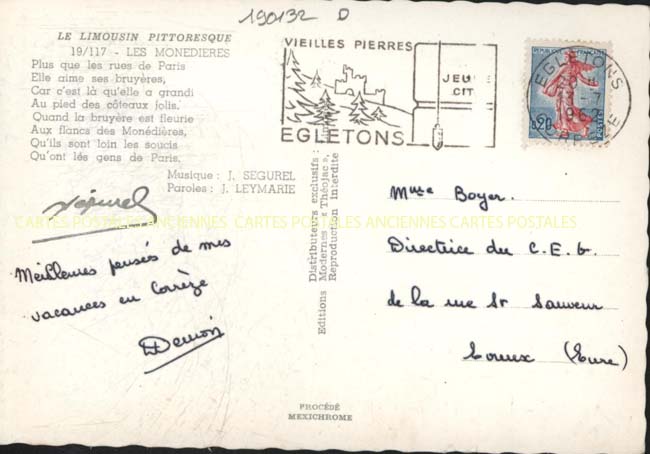 190132 D
LE LIMOUSIN PITTORESQUE
19/117 - LES MONEDIERES
Plus que les rues de Paris
Elle aime ses bruyères,
Car c'est là qu'elle a grandi
Au pied des côteaux jolis.
Quand la bruyère est fleurie
Aux flancs des Monédières,
Qu'ils sont loin les soucis
Qu'ont lés gens de Paris.
Musique : J. SEGUREL
Paroles : J. LEYMARIE
Ségurel
Meilleures pensées de mes
vacances en Corrèze
VIEILLES PIERRES
JEU
CIT
EGLETONS
EGLETONS
0,20
POSTES
Distributeurs exclusifs :
Editions Modernes « Théojac »,
Reproduction Interdite
CARTES POSTALES ANCIENNES CARTES POSTALES ANCIENNES CARTES POSTALES
Mme Boyer.
Directrice du C.E.G.
de la rue St Sauveur
(Eure)
PROCÉDÉ
MEXICHROME